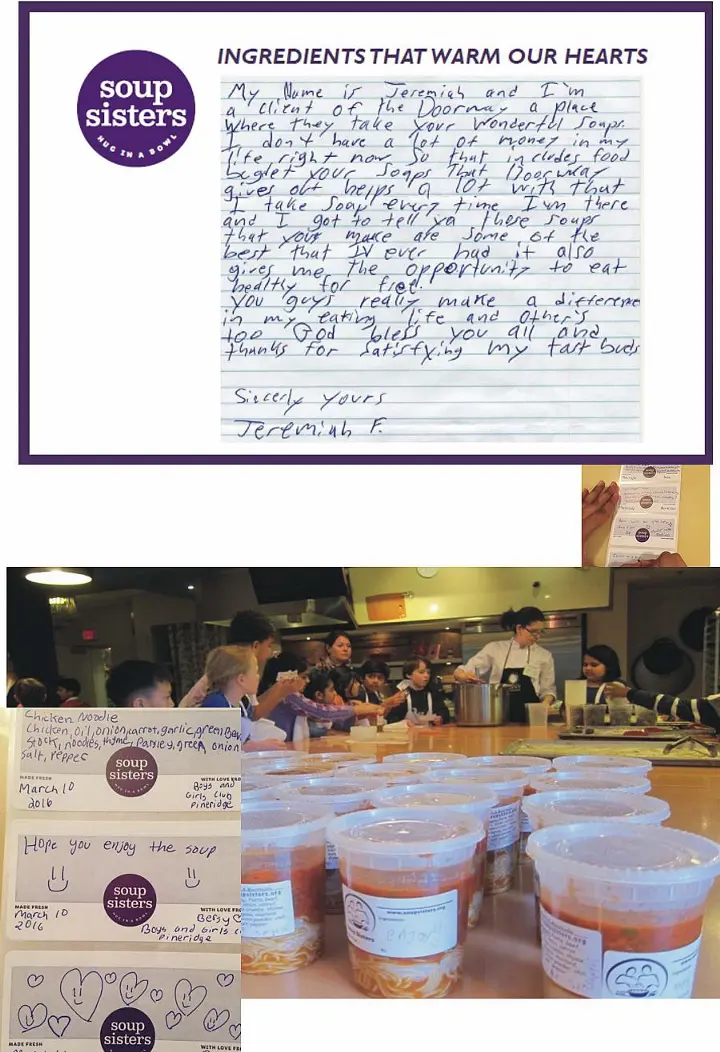 INGREDIENTS THAT WARM OUR HEARTS
soup
sisters
HUG IN A BOWL
My Name is Jeremiah and I'm
a client of the Doorway a place
Where they take your wonderful soups.
I don't have a lot of money in my
life right now so that includes food
your soups That Doorway
gives out helps a lot with that
I take soup every time I'm there
and I got to tell ya these soups
that your make are some of the
best that IV ever had it also
gives me the opportunity to eat
healtly for free.
You guys really make a difference
in my eating life and other's
too God bless you all and
thanks for satisfying my tast buds
Sincerly yours
Jeremiah F.
Chicken Noodle
Chicken, oil, onion, carrot, garlic, green
stock, noodles, thyme, parsley, green onion
salt, pepper
soup
sisters
HUG IN A BOWL
MADE FRESH
March 10
2016
WITH LOVE
Boys and
Girls Club
Pineridge
Hope you enjoy the soup
soup
sisters
HUG IN A BOWL
MADE FRESH
March 10
2016
Betsy
Boys and Girls
Pineridge
soup
sisters
MADE FRESH
WITH LOVE
www.soupsisters.org
Sisters
ENJOY